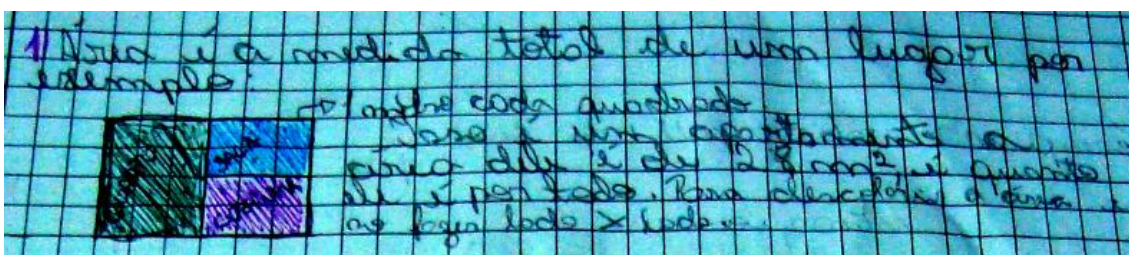 1) Área é a medida total de um lugar por
exemplo:
→ 1 metro cada quadrado
isso é um apartamento a
área dele é de 28 m², é quanto
ele é por todo. Para descobrir a área é
só fazer lado x lado.
quarto
sala
cozinha